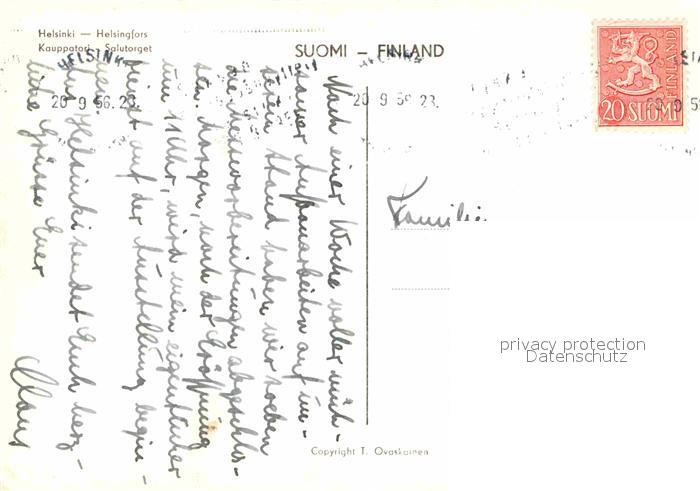 Helsinki — Helsingfors
Kauppatori - Salutorget
SUOMI – FINLAND
HELSINKI
20 9 56.23.
20 9 56 23.
FINLAND
20 SUOMI
Nach einer Woche voller müh-
samer Aufbauarbeiten auf un-
serem Stand haben wir soeben
die Messevorbereitungen abgeschlos-
sen. Morgen, nach der Eröffnung
um 11 Uhr, wird mein eigentlicher
Dienst auf der Ausstellung begin-
nen. Aus Helsinki sendet Euch herz-
liche Grüsse Euer
Klaus
Familie
privacy protection
Datenschutz
Copyright T. Ovaskainen